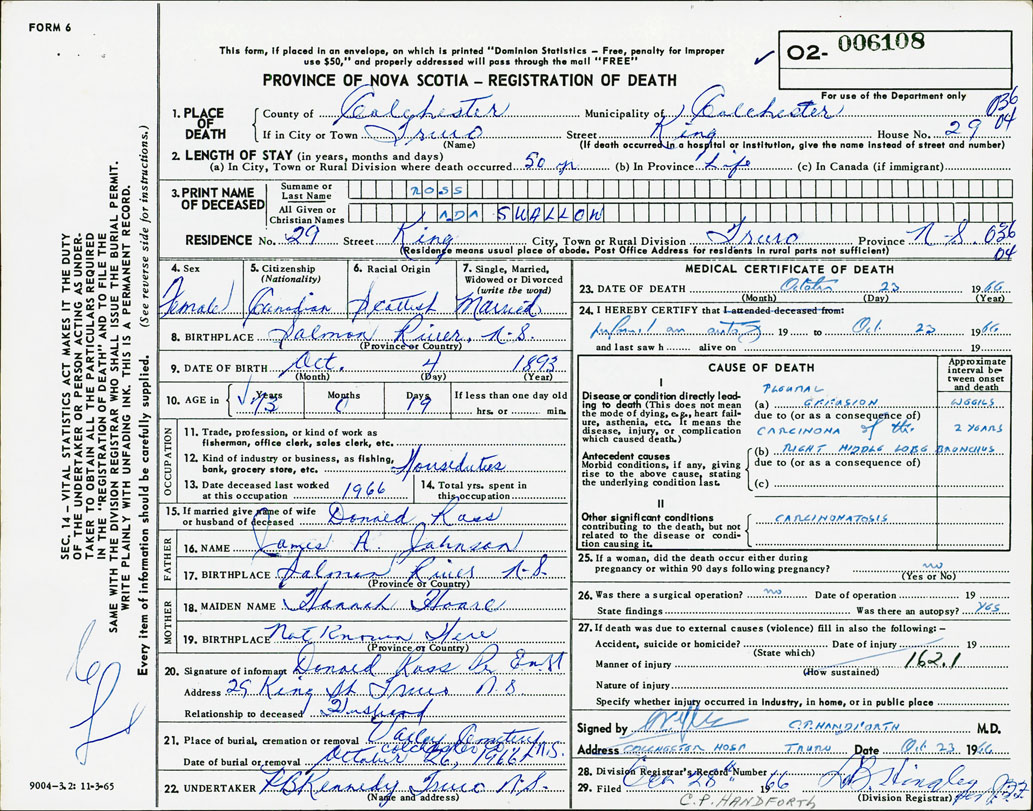 FORM 6
This form, if placed in an envelope, on which is printed "Dominion Statistics – Free, penalty for improper
use $50," and properly addressed will pass through the mail "FREE"
PROVINCE OF NOVA SCOTIA – REGISTRATION OF DEATH
O2- 006108
For use of the Department only
036
04
1. PLACE OF DEATH
County of Colchester Municipality of Colchester
If in City or Town Truro Street King House No. 29
(Name) (If death occurred in a hospital or institution, give the name instead of street and number)
2. LENGTH OF STAY (in years, months and days)
(a) In City, Town or Rural Division where death occurred 50 yr (b) In Province Life (c) In Canada (if immigrant)
3. PRINT NAME OF DECEASED
Surname or Last Name ROSS
All Given or Christian Names ADA SWALLOW
RESIDENCE No. 29 Street King City, Town or Rural Division Truro Province N-S. 036
(Residence means usual place of abode. Post Office Address for residents in rural parts not sufficient) 04
4. Sex Female
5. Citizenship (Nationality) Canadian
6. Racial Origin Scottish
7. Single, Married, Widowed or Divorced (write the word) Married
8. BIRTHPLACE Salmon River, N-S.
(Province or Country)
9. DATE OF BIRTH Oct. 4 1893
(Month) (Day) (Year)
10. AGE in Years 73 Months 0 Days 19 If less than one day old
hrs. or min.
OCCUPATION
11. Trade, profession, or kind of work as
fisherman, office clerk, sales clerk, etc.
12. Kind of industry or business, as fishing,
bank, grocery store, etc. Housduties
13. Date deceased last worked
at this occupation 1966
14. Total yrs. spent in
this occupation
15. If married give name of wife
or husband of deceased Donald Ross
FATHER
16. NAME James A. Johnson
17. BIRTHPLACE Salmon River N-S.
(Province or Country)
MOTHER
18. MAIDEN NAME Hannah Hoare
19. BIRTHPLACE Not Known Here
(Province or Country)
20. Signature of informant Donald Ross
Address 29 King St Truro N.S
Relationship to deceased Husband
21. Place of burial, cremation or removal Cemetery Colchester Co, N.S.
Date of burial or removal October 26, 1966
22. UNDERTAKER Kennedy Truro N.S.
(Name and address)
MEDICAL CERTIFICATE OF DEATH
23. DATE OF DEATH October 23 1966
(Month) (Day) (Year)
24. I HEREBY CERTIFY that I attended deceased from:
19 to Oct. 23 1966
and last saw h alive on 19
CAUSE OF DEATH
Approximate interval between onset and death
I
Disease or condition directly leading to death (This does not mean the mode of dying, e.g., heart failure, asthenia, etc. It means the disease, injury, or complication which caused death.)
PLEURAL
(a) EFFUSION WEEKS
due to (or as a consequence of)
CARCINOMA of the 2 YEARS
Antecedent causes
Morbid conditions, if any, giving rise to the above cause, stating the underlying condition last.
(b) RIGHT MIDDLE LOBE BRONCHUS
due to (or as a consequence of)
(c)
II
Other significant conditions
contributing to the death, but not related to the disease or condition causing it.
CARCINOMATOSIS
25. If a woman, did the death occur either during
pregnancy or within 90 days following pregnancy? no
(Yes or No)
26. Was there a surgical operation? no Date of operation 19
State findings Was there an autopsy? YES
27. If death was due to external causes (violence) fill in also the following:–
Accident, suicide or homicide? Date of injury 19
(State which)
Manner of injury 162.1
(How sustained)
Nature of injury
Specify whether injury occurred in Industry, in home, or in public place
Signed by C.P. HANDFORTH M.D.
Address COLCHESTER HOSP TRURO Date Oct 23. 1966
28. Division Registrar's Record Number
29. Filed 1966
(Division Registrar)
C.P. HANDFORTH
SEC. 14 – VITAL STATISTICS ACT MAKES IT THE DUTY
OF THE UNDERTAKER OR PERSON ACTING AS UNDER-
TAKER TO OBTAIN ALL THE PARTICULARS REQUIRED
IN THE "REGISTRATION OF DEATH" AND TO FILE THE
SAME WITH THE DIVISION REGISTRAR WHO SHALL ISSUE THE BURIAL PERMIT.
WRITE PLAINLY WITH UNFADING INK. THIS IS A PERMANENT RECORD.
Every item of information should be carefully supplied. (See reverse side for instructions.)
9004–3.2: 11-3-65